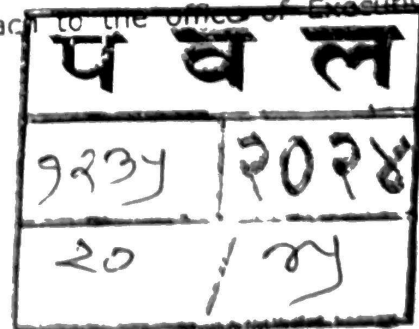 ach to the office of Executi
प व ल
१२३५ २०२४
२० /